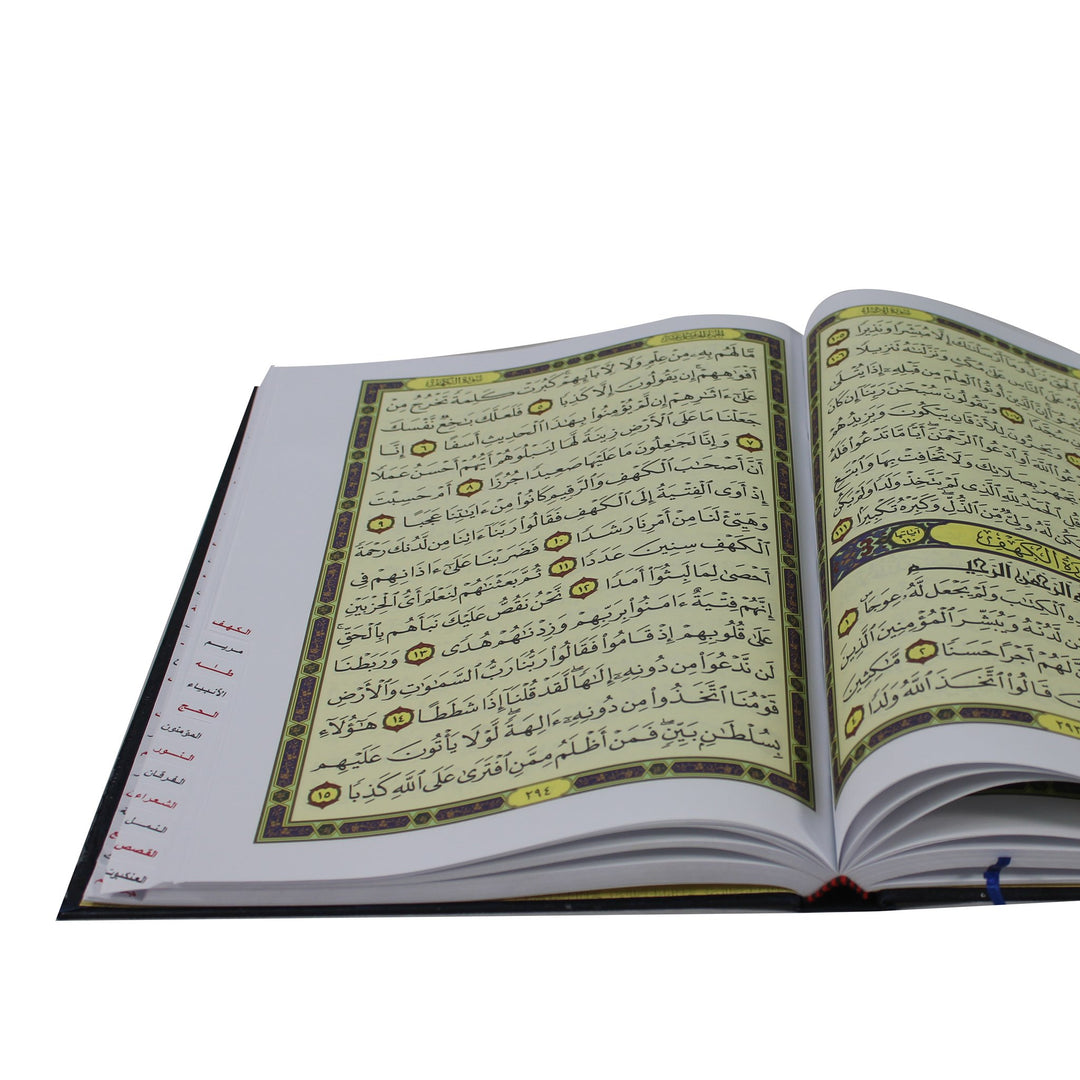 سورة الإسراء
أَرْسَلْنَٰكَ إِلَّا مُبَشِّرًا وَنَذِيرًا ١٠٥
عَلَى ٱلنَّاسِ عَلَىٰ مُكْثٍ وَنَزَّلْنَٰهُ تَنزِيلًا ١٠٦
إِنَّ ٱلَّذِينَ أُوتُوا۟ ٱلْعِلْمَ مِن قَبْلِهِۦٓ إِذَا يُتْلَىٰ
١٠٧ وَيَقُولُونَ سُبْحَٰنَ رَبِّنَآ إِن كَانَ
لِلْأَذْقَانِ يَبْكُونَ وَيَزِيدُهُمْ
ٱللَّهَ أَوِ ٱدْعُوا۟ ٱلرَّحْمَٰنَ أَيًّا مَّا تَدْعُوا۟ فَلَهُ
تَجْهَرْ بِصَلَاتِكَ وَلَا تُخَافِتْ بِهَا وَٱبْتَغِ
ٱلْحَمْدُ لِلَّهِ ٱلَّذِى لَمْ يَتَّخِذْ وَلَدًا وَلَمْ يَكُن
لَّهُۥ وَلِىٌّ مِّنَ ٱلذُّلِّ وَكَبِّرْهُ تَكْبِيرًا ١١١
الكهف آياتها ١١٠
ٱلرَّحْمَٰنِ ٱلرَّحِيمِ
ٱلْكِتَٰبَ وَلَمْ يَجْعَل لَّهُۥ عِوَجَا ١
لَّدُنْهُ وَيُبَشِّرَ ٱلْمُؤْمِنِينَ ٱلَّذِينَ
لَهُمْ أَجْرًا حَسَنًا ٢ مَّٰكِثِينَ
قَالُوا۟ ٱتَّخَذَ ٱللَّهُ وَلَدًا ٤
٢٩٣
سورة الكهف
مَّا لَهُم بِهِۦ مِنْ عِلْمٍ وَلَا لِءَابَآئِهِمْ كَبُرَتْ كَلِمَةً تَخْرُجُ مِنْ
أَفْوَٰهِهِمْ إِن يَقُولُونَ إِلَّا كَذِبًا ٥ فَلَعَلَّكَ بَٰخِعٌ نَّفْسَكَ
عَلَىٰٓ ءَاثَٰرِهِمْ إِن لَّمْ يُؤْمِنُوا۟ بِهَٰذَا ٱلْحَدِيثِ أَسَفًا ٦ إِنَّا
جَعَلْنَا مَا عَلَى ٱلْأَرْضِ زِينَةً لَّهَا لِنَبْلُوَهُمْ أَيُّهُمْ أَحْسَنُ عَمَلًا
٧ وَإِنَّا لَجَٰعِلُونَ مَا عَلَيْهَا صَعِيدًا جُرُزًا ٨ أَمْ حَسِبْتَ
أَنَّ أَصْحَٰبَ ٱلْكَهْفِ وَٱلرَّقِيمِ كَانُوا۟ مِنْ ءَايَٰتِنَا عَجَبًا ٩
إِذْ أَوَى ٱلْفِتْيَةُ إِلَى ٱلْكَهْفِ فَقَالُوا۟ رَبَّنَآ ءَاتِنَا مِن لَّدُنكَ رَحْمَةً
وَهَيِّئْ لَنَا مِنْ أَمْرِنَا رَشَدًا ١٠ فَضَرَبْنَا عَلَىٰٓ ءَاذَانِهِمْ فِى
ٱلْكَهْفِ سِنِينَ عَدَدًا ١١ ثُمَّ بَعَثْنَٰهُمْ لِنَعْلَمَ أَىُّ ٱلْحِزْبَيْنِ
أَحْصَىٰ لِمَا لَبِثُوٓا۟ أَمَدًا ١٢ نَّحْنُ نَقُصُّ عَلَيْكَ نَبَأَهُم بِٱلْحَقِّ
إِنَّهُمْ فِتْيَةٌ ءَامَنُوا۟ بِرَبِّهِمْ وَزِدْنَٰهُمْ هُدًى ١٣ وَرَبَطْنَا
عَلَىٰ قُلُوبِهِمْ إِذْ قَامُوا۟ فَقَالُوا۟ رَبُّنَا رَبُّ ٱلسَّمَٰوَٰتِ وَٱلْأَرْضِ
لَن نَّدْعُوَا۟ مِن دُونِهِۦٓ إِلَٰهًا لَّقَدْ قُلْنَآ إِذًا شَطَطًا ١٤ هَٰٓؤُلَآءِ
قَوْمُنَا ٱتَّخَذُوا۟ مِن دُونِهِۦٓ ءَالِهَةً لَّوْلَا يَأْتُونَ عَلَيْهِم
بِسُلْطَٰنٍۭ بَيِّنٍ فَمَنْ أَظْلَمُ مِمَّنِ ٱفْتَرَىٰ عَلَى ٱللَّهِ كَذِبًا ١٥
٢٩٤
الكهف
مريم
طه
الأنبياء
الحج
المؤمنون
النور
الفرقان
الشعراء
النمل
القصص
العنكبوت